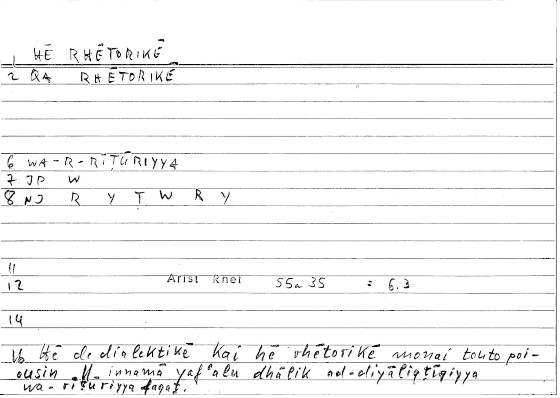 1 HĒ RHĒTORIKĒ
2 QA RHĒTORIKĒ
6 WA-R-RĪṬŪRIYYA
7 JP W
8 NJ R Y Ṭ W R Y
11
12 Arist Rhet 55a 35 = 6.3
14
16 Hē de dialektikē kai hē rhētorikē monai touto poi-
ousin. innamā yafʿalu dhālik ad-diyāliqṭīqiyya
wa-rīṭūriyya faqaṭ.